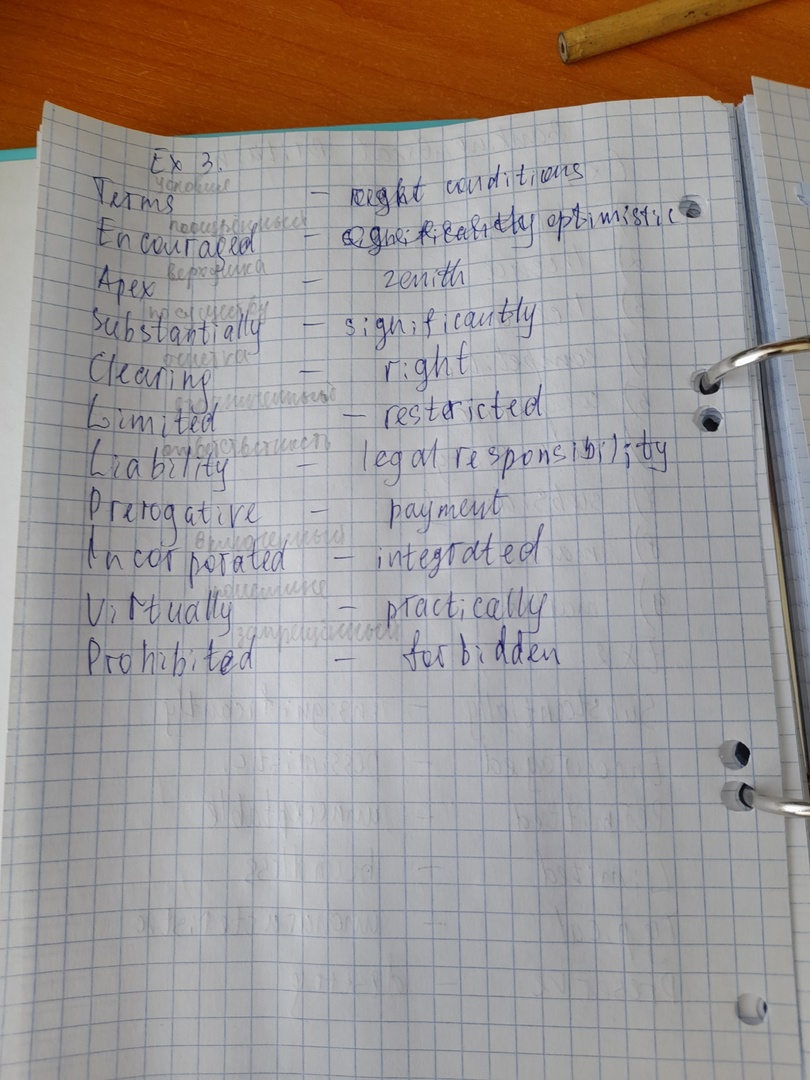 Ex 3.
условие
Terms – conditions
Encouraged – optimistic
верхушка
Apex – zenith
Substantially – significantly
Clearing – right
Limited – restricted
ответственность
Liability – legal responsibility
Prerogative – payment
Incorporated – integrated
поистине
Virtually – practically
запрещенный
Prohibited – forbidden